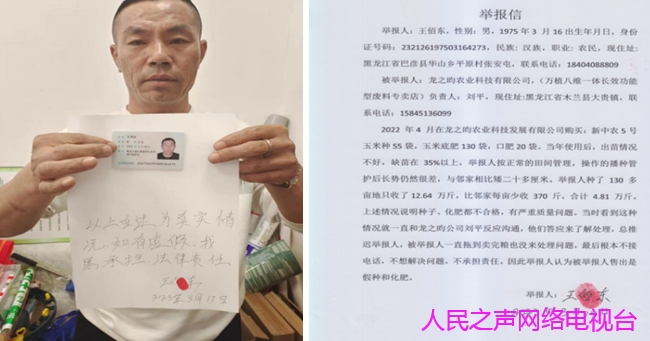 以上陈述为真实情
况,如有虚假,我
愿承担法律责任
2023年3月17日
举报信
举报人:王佰东,性别:男,1975年3月16出生年月日,身份
证号码:232126197503164273,民族:汉族,职业:农民,现住址:
黑龙江省巴彦县华山乡平原村张安屯,联系电话:18404088809
被举报人:龙之昀农业科技有限公司,(万植八维一体长效功能
型废料专卖店)负责人:刘平,现住址:黑龙江省木兰县大贵镇,联
系电话:15845136099
2022年4月在龙之昀农业科技发展有限公司购买:新中农5号
玉米种55袋,玉米底肥130袋,口肥20袋。当年使用后,出苗情况
不好,缺苗在35%以上。举报人按正常的田间管理,操作的播种管
护后长势仍然很差,与邻家相比矮二十多厘米。举报人种了130多
亩地只收了12.64万斤,比邻家每亩少收370斤,合计4.81万斤。
上述情况说明种子、化肥都不合格,有严重质量问题。当时看到这种
情况就一直和龙之昀公司刘平反应沟通,他们答应来了解处理,总推
迟举报人,被举报人一直拖到卖完粮也没来处理问题,最后根本不接
电话,不想解决问题,不承担责任。因此举报人认为被举报人售出是
假种和化肥。
举报人:王佰东
人民之声网络电视台